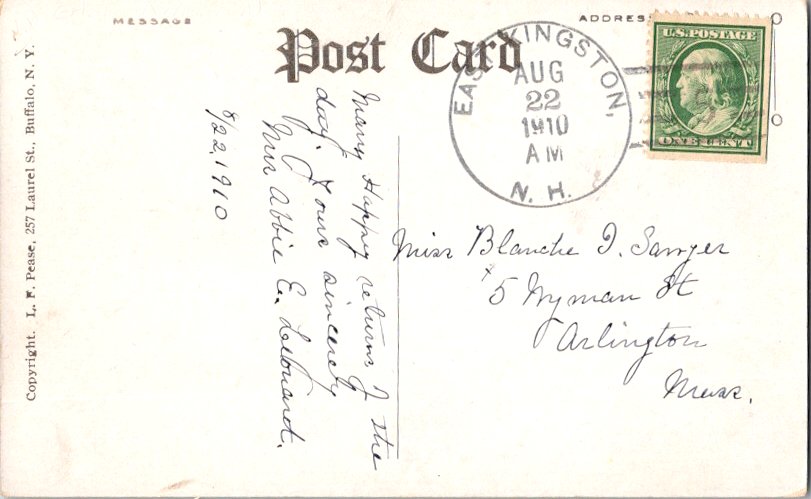 MESSAGE
Post Card
ADDRESS
EAST KINGSTON,
AUG
22
1910
AM
N. H.
U.S. POSTAGE
ONE CENT
Many Happy returns of the
day. Yours sincerely
Mrs Abbie E.
8/22,1910
Miss Blanche I. Sawyer
5 Wyman St
Arlington
Mass.
Copyright. L. F. Pease, 257 Laurel St., Buffalo, N. Y.